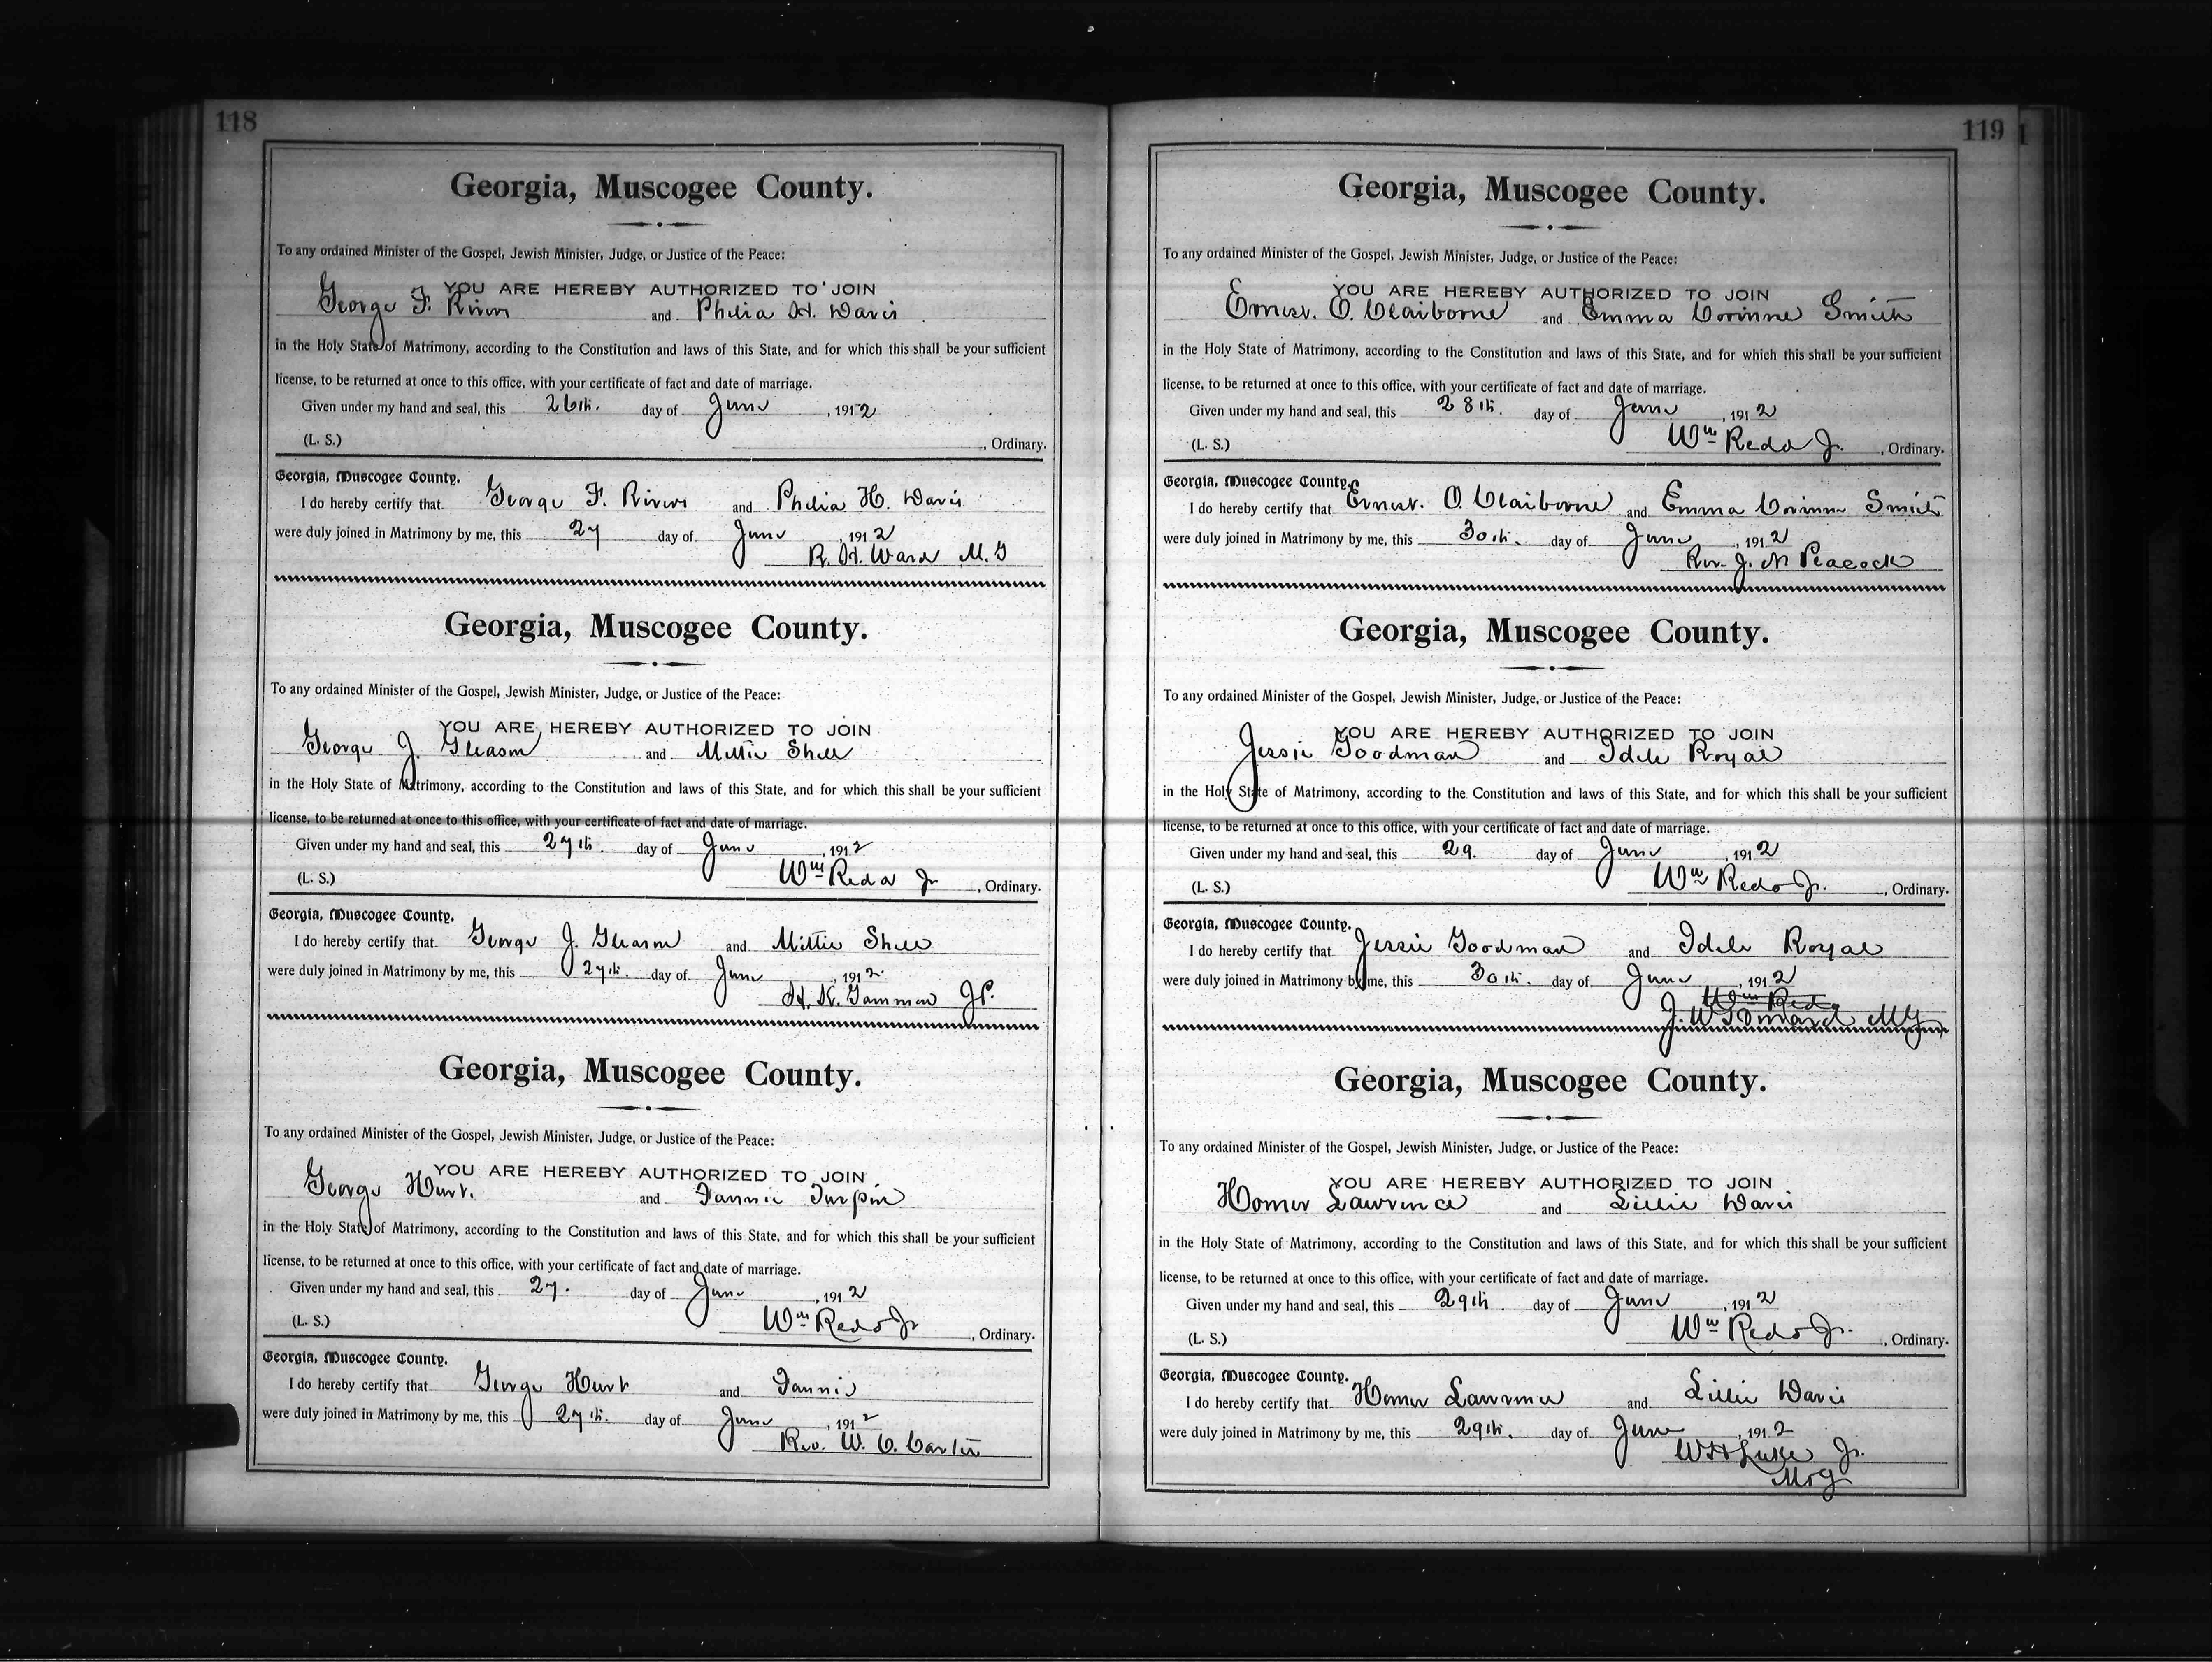 118
Georgia, Muscogee County.
To any ordained Minister of the Gospel, Jewish Minister, Judge, or Justice of the Peace:
YOU ARE HEREBY AUTHORIZED TO JOIN
George F. Rivers and Philia H. Davis
in the Holy State of Matrimony, according to the Constitution and laws of this State, and for which this shall be your sufficient
license, to be returned at once to this office, with your certificate of fact and date of marriage.
Given under my hand and seal, this 26th. day of June, 1912
(L. S.) , Ordinary.
Georgia, Muscogee County.
I do hereby certify that George F. Rivers and Philia H. Davis
were duly joined in Matrimony by me, this 27 day of June, 1912
R. H. Ward M. G
Georgia, Muscogee County.
To any ordained Minister of the Gospel, Jewish Minister, Judge, or Justice of the Peace:
YOU ARE HEREBY AUTHORIZED TO JOIN
George J. Gleason and Mittie Shell
in the Holy State of Matrimony, according to the Constitution and laws of this State, and for which this shall be your sufficient
license, to be returned at once to this office, with your certificate of fact and date of marriage.
Given under my hand and seal, this 27th. day of June, 1912
(L. S.) Wm Redd Jr, Ordinary.
Georgia, Muscogee County.
I do hereby certify that George J. Gleason and Mittie Shell
were duly joined in Matrimony by me, this 27th. day of June, 1912
H. K. Gammon J.P.
Georgia, Muscogee County.
To any ordained Minister of the Gospel, Jewish Minister, Judge, or Justice of the Peace:
YOU ARE HEREBY AUTHORIZED TO JOIN
George Hurt. and Fannie Turpin
in the Holy State of Matrimony, according to the Constitution and laws of this State, and for which this shall be your sufficient
license, to be returned at once to this office, with your certificate of fact and date of marriage.
Given under my hand and seal, this 27. day of June, 1912
(L. S.) Wm Redd Jr, Ordinary.
Georgia, Muscogee County.
I do hereby certify that George Hurt and Fannie
were duly joined in Matrimony by me, this 27th. day of June, 1912
Rev. W. C. Carter
119
Georgia, Muscogee County.
To any ordained Minister of the Gospel, Jewish Minister, Judge, or Justice of the Peace:
YOU ARE HEREBY AUTHORIZED TO JOIN
Ernest. O. Claiborne and Emma Corinne Smith
in the Holy State of Matrimony, according to the Constitution and laws of this State, and for which this shall be your sufficient
license, to be returned at once to this office, with your certificate of fact and date of marriage.
Given under my hand and seal, this 28th. day of June, 1912
(L. S.) Wm Redd Jr., Ordinary.
Georgia, Muscogee County.
I do hereby certify that Ernest. O. Claiborne and Emma Corinne Smith
were duly joined in Matrimony by me, this 30th. day of June, 1912
Rev. J. N Peacock
Georgia, Muscogee County.
To any ordained Minister of the Gospel, Jewish Minister, Judge, or Justice of the Peace:
YOU ARE HEREBY AUTHORIZED TO JOIN
Jessie Goodman and Idele Royal
in the Holy State of Matrimony, according to the Constitution and laws of this State, and for which this shall be your sufficient
license, to be returned at once to this office, with your certificate of fact and date of marriage.
Given under my hand and seal, this 29. day of June, 1912
(L. S.) Wm Redd Jr., Ordinary.
Georgia, Muscogee County.
I do hereby certify that Jessie Goodman and Idele Royal
were duly joined in Matrimony by me, this 30th. day of June, 1912
Wm Redd
J. W. MG
Georgia, Muscogee County.
To any ordained Minister of the Gospel, Jewish Minister, Judge, or Justice of the Peace:
YOU ARE HEREBY AUTHORIZED TO JOIN
Homer Lawrence and Lillie Davis
in the Holy State of Matrimony, according to the Constitution and laws of this State, and for which this shall be your sufficient
license, to be returned at once to this office, with your certificate of fact and date of marriage.
Given under my hand and seal, this 29th. day of June, 1912
(L. S.) Wm Redd Jr., Ordinary.
Georgia, Muscogee County.
I do hereby certify that Homer Lawrence and Lillie Davis
were duly joined in Matrimony by me, this 29th. day of June, 1912
W H Luke Jr.
M.G